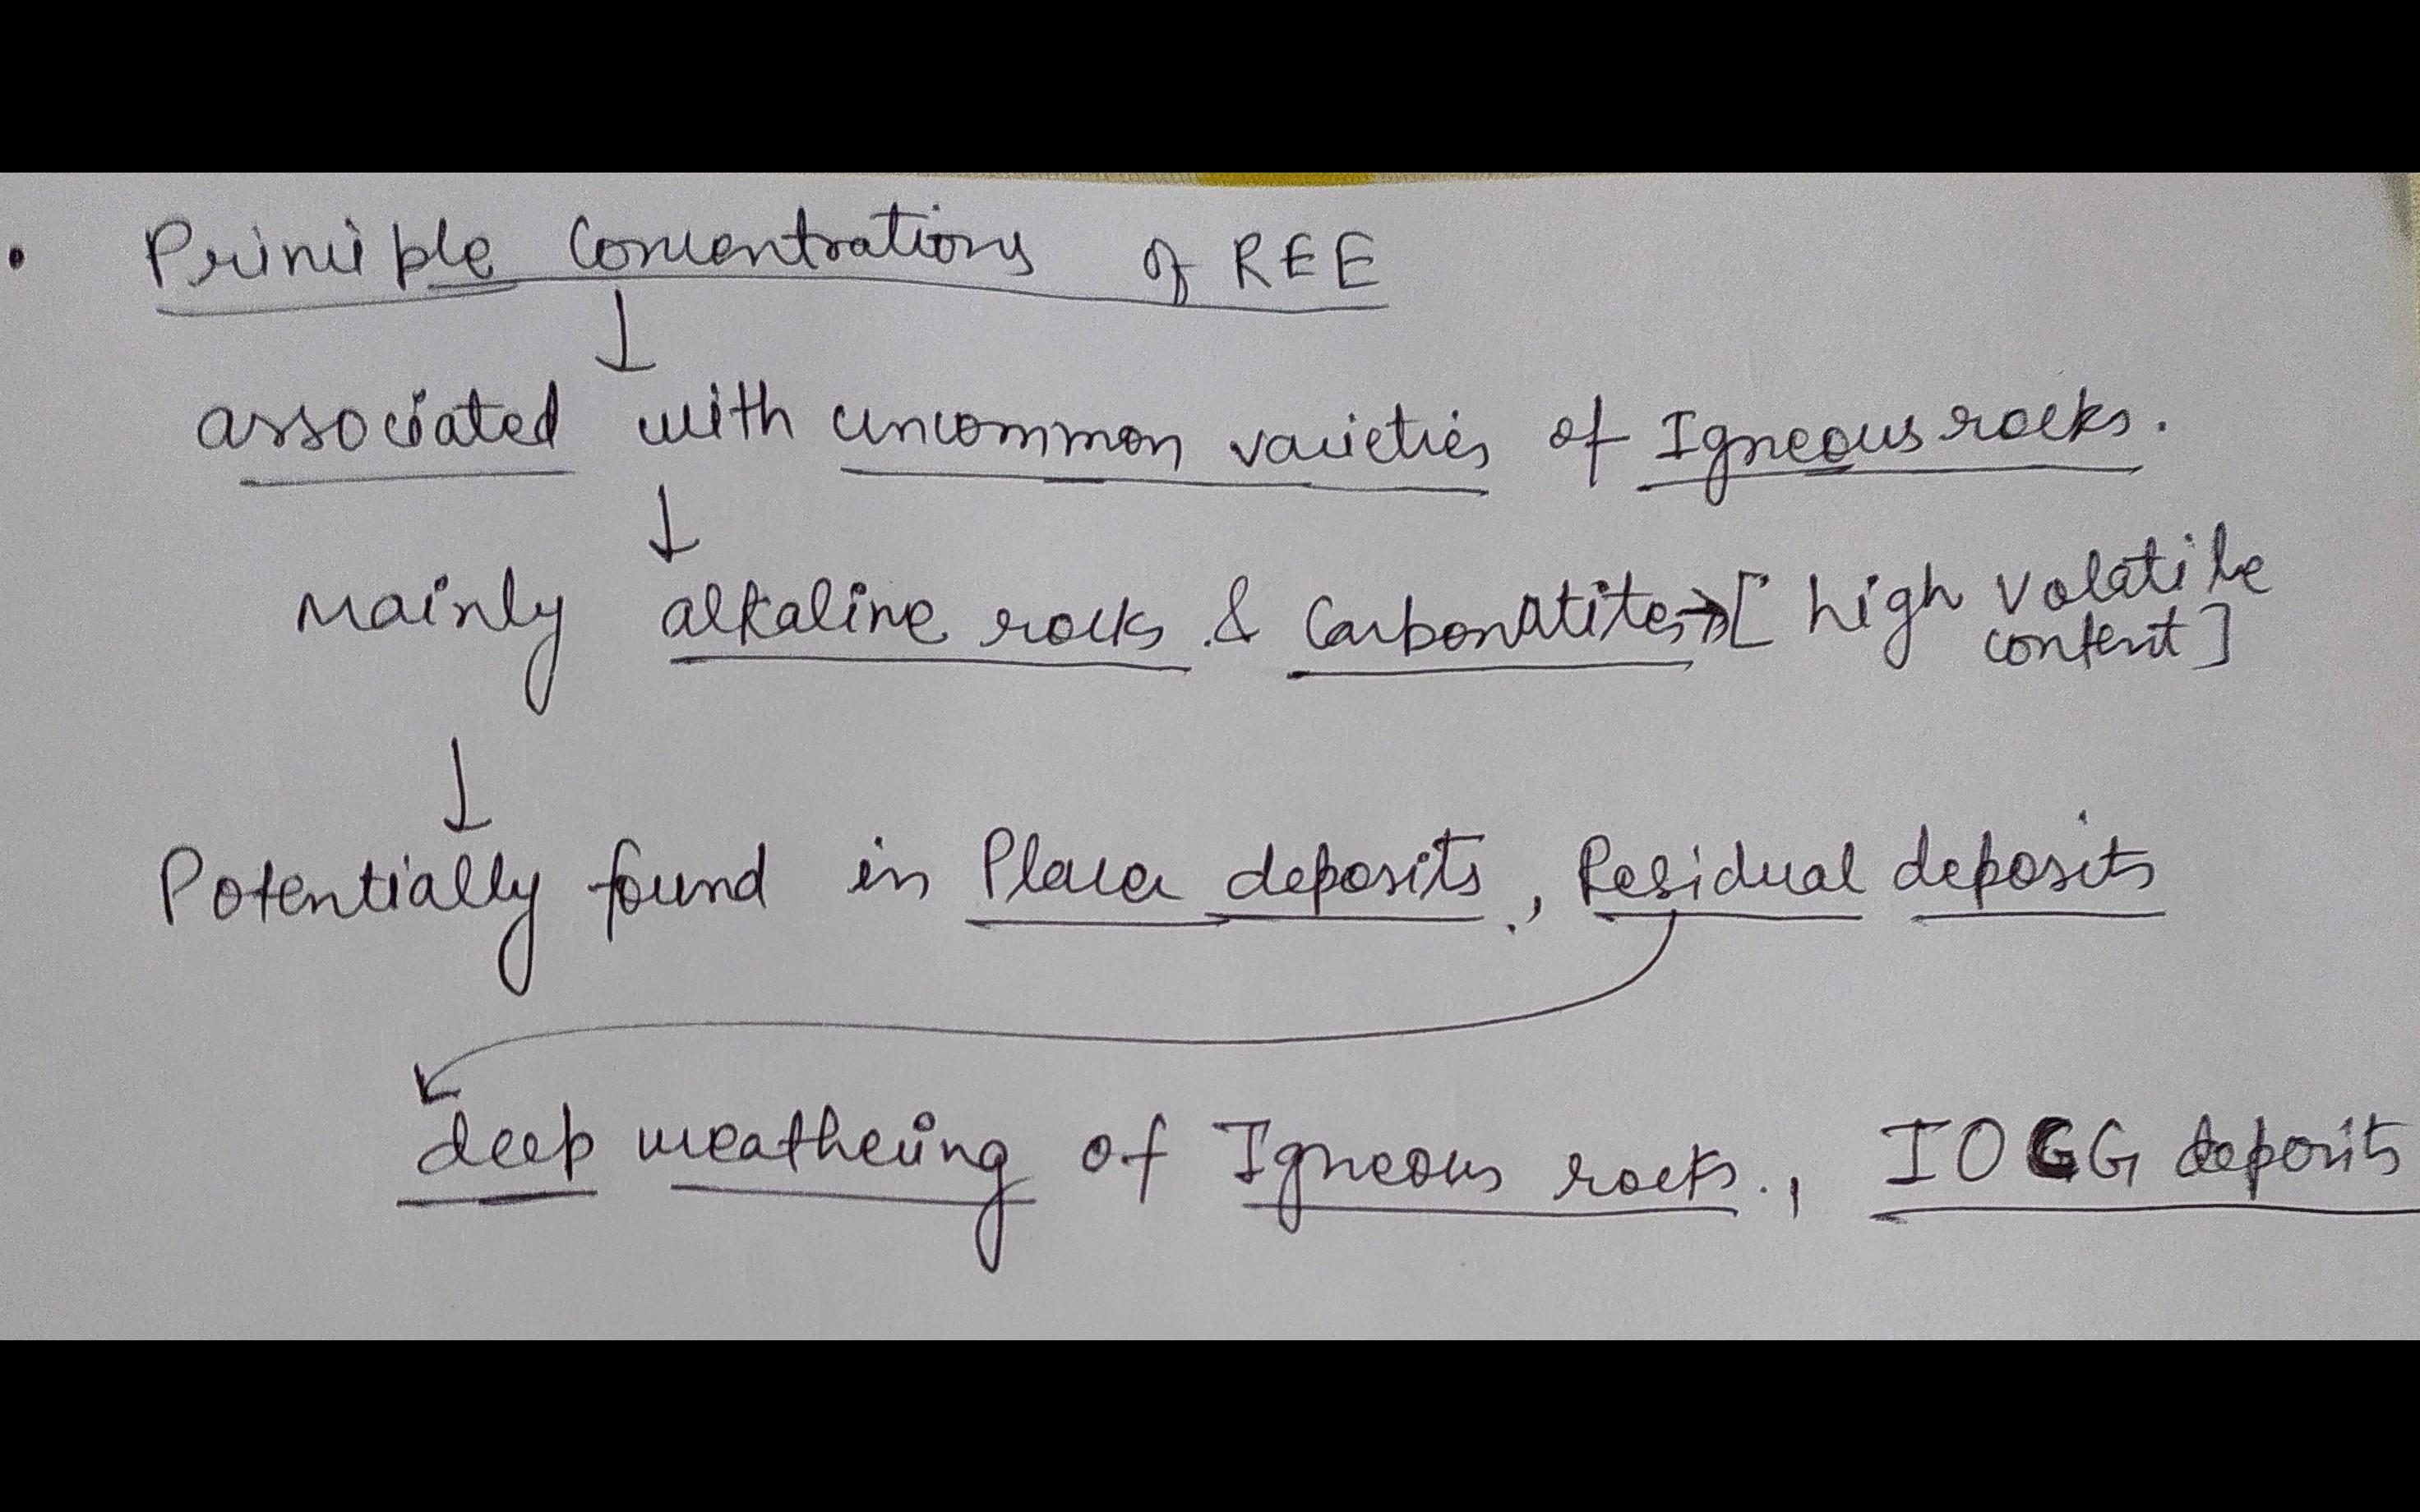 • Principle Concentrations of REE
↓
associated with uncommon varieties of Igneous rocks.
↓
Mainly alkaline rocks & Carbonatites → [high volatile
content]
↓
Potentially found in Placer deposits, Residual deposits
deep weathering of Igneous rocks., IOCG deposits